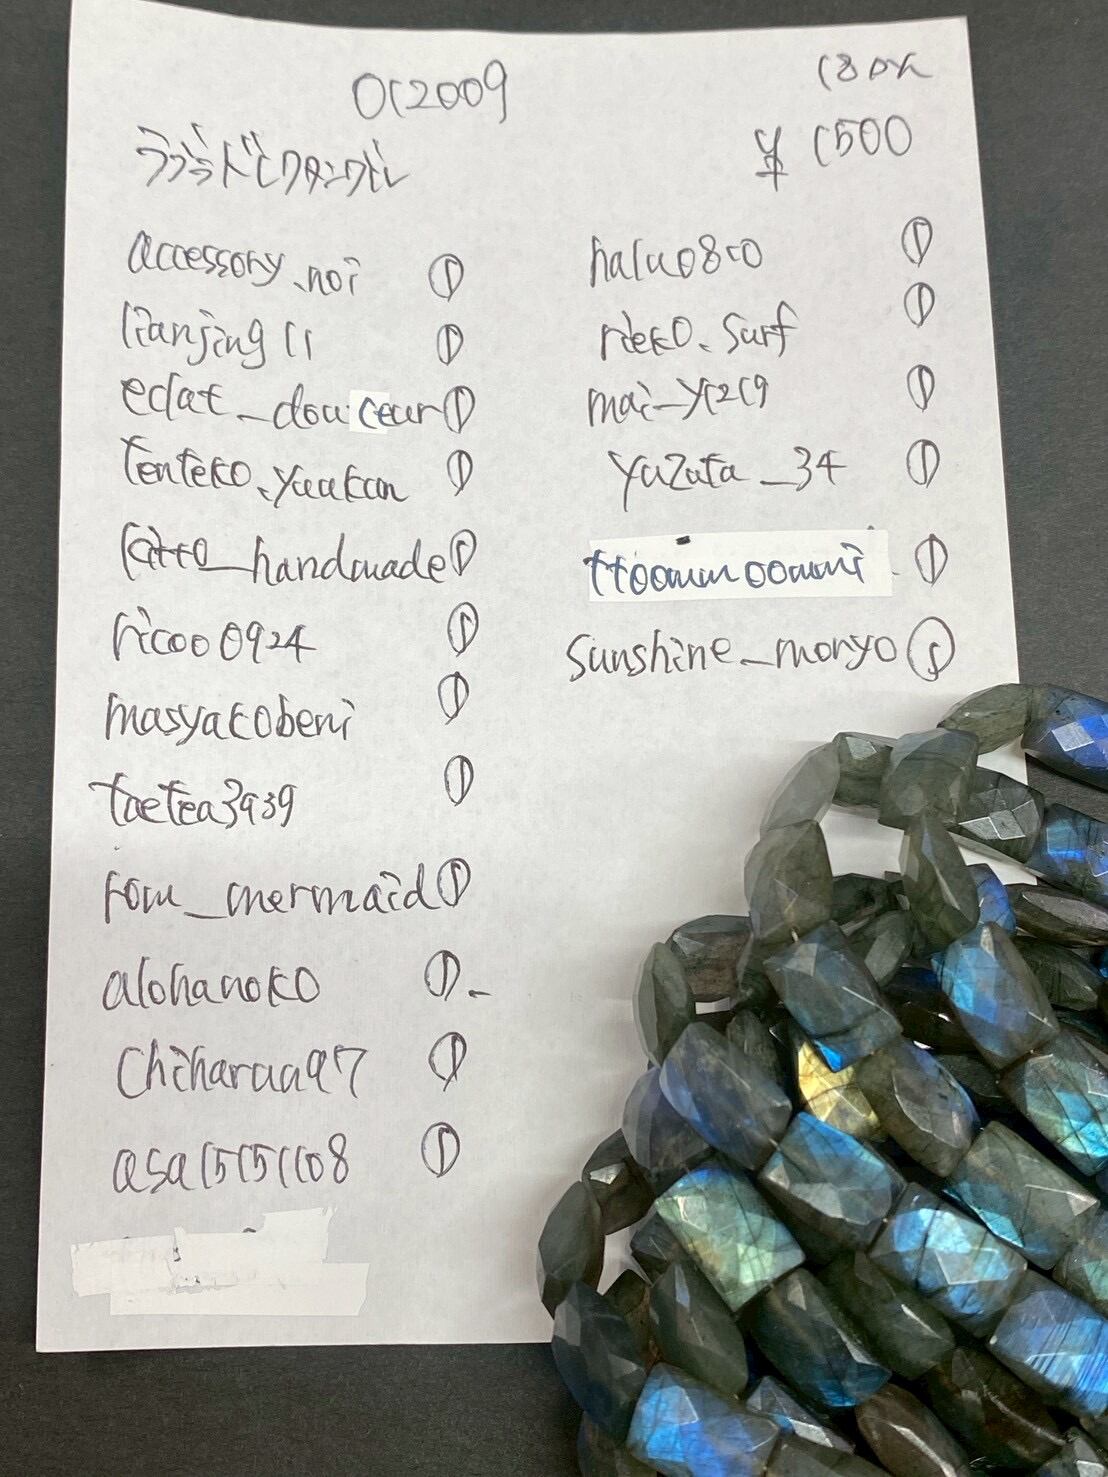 012009
18pk
ラブラドレクタングル
¥1500
accessory.noi ①
lianjing11 ①
eclat_douceur ①
tenteko.yuukun ①
kitto_handmade ①
ricoo0924 ①
masyakobeni ①
taetea3939 ①
rom_mermaid ①
alohanoko ①
chiharuu97 ①
asa15151108 ①
halu0810 ①
rieko.surf ①
mai_y1219 ①
yuzuta_34 ①
ttoommoommi ①
sunshine_moryo ①